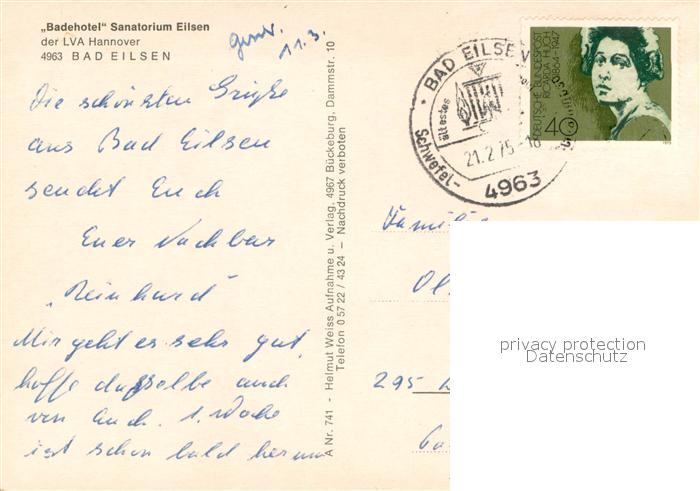 „Badehotel“ Sanatorium Eilsen
der LVA Hannover
4963 BAD EILSEN
11.3.
Die schönsten Grüße
aus Bad Eilsen
sendet Euch
Euer Nachbar
„Reinhard“
Mir geht es sehr gut,
hoffe dasselbe auch
von Euch. 1. Woche
ist schon bald herum
A Nr. 741 - Helmut Weiss Aufnahme u. Verlag, 4967 Bückeburg, Dammstr. 10
Telefon 0 57 22 / 43 24 — Nachdruck verboten
BAD EILSE
ältestes
Schwefel-
21.2.75-18
4963
DEUTSCHE BUNDESPOST
RICARDA HUCH
1864-1947
40
Familie
Ol
295
privacy protection
Datenschutz